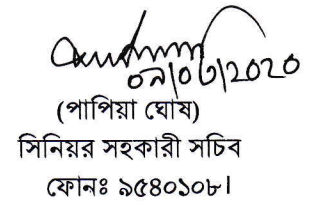 ০৯/০৮/২০২০
(পাপিয়া ঘোষ)
সিনিয়র সহকারী সচিব
ফোনঃ ৯৫৪০১০৮।